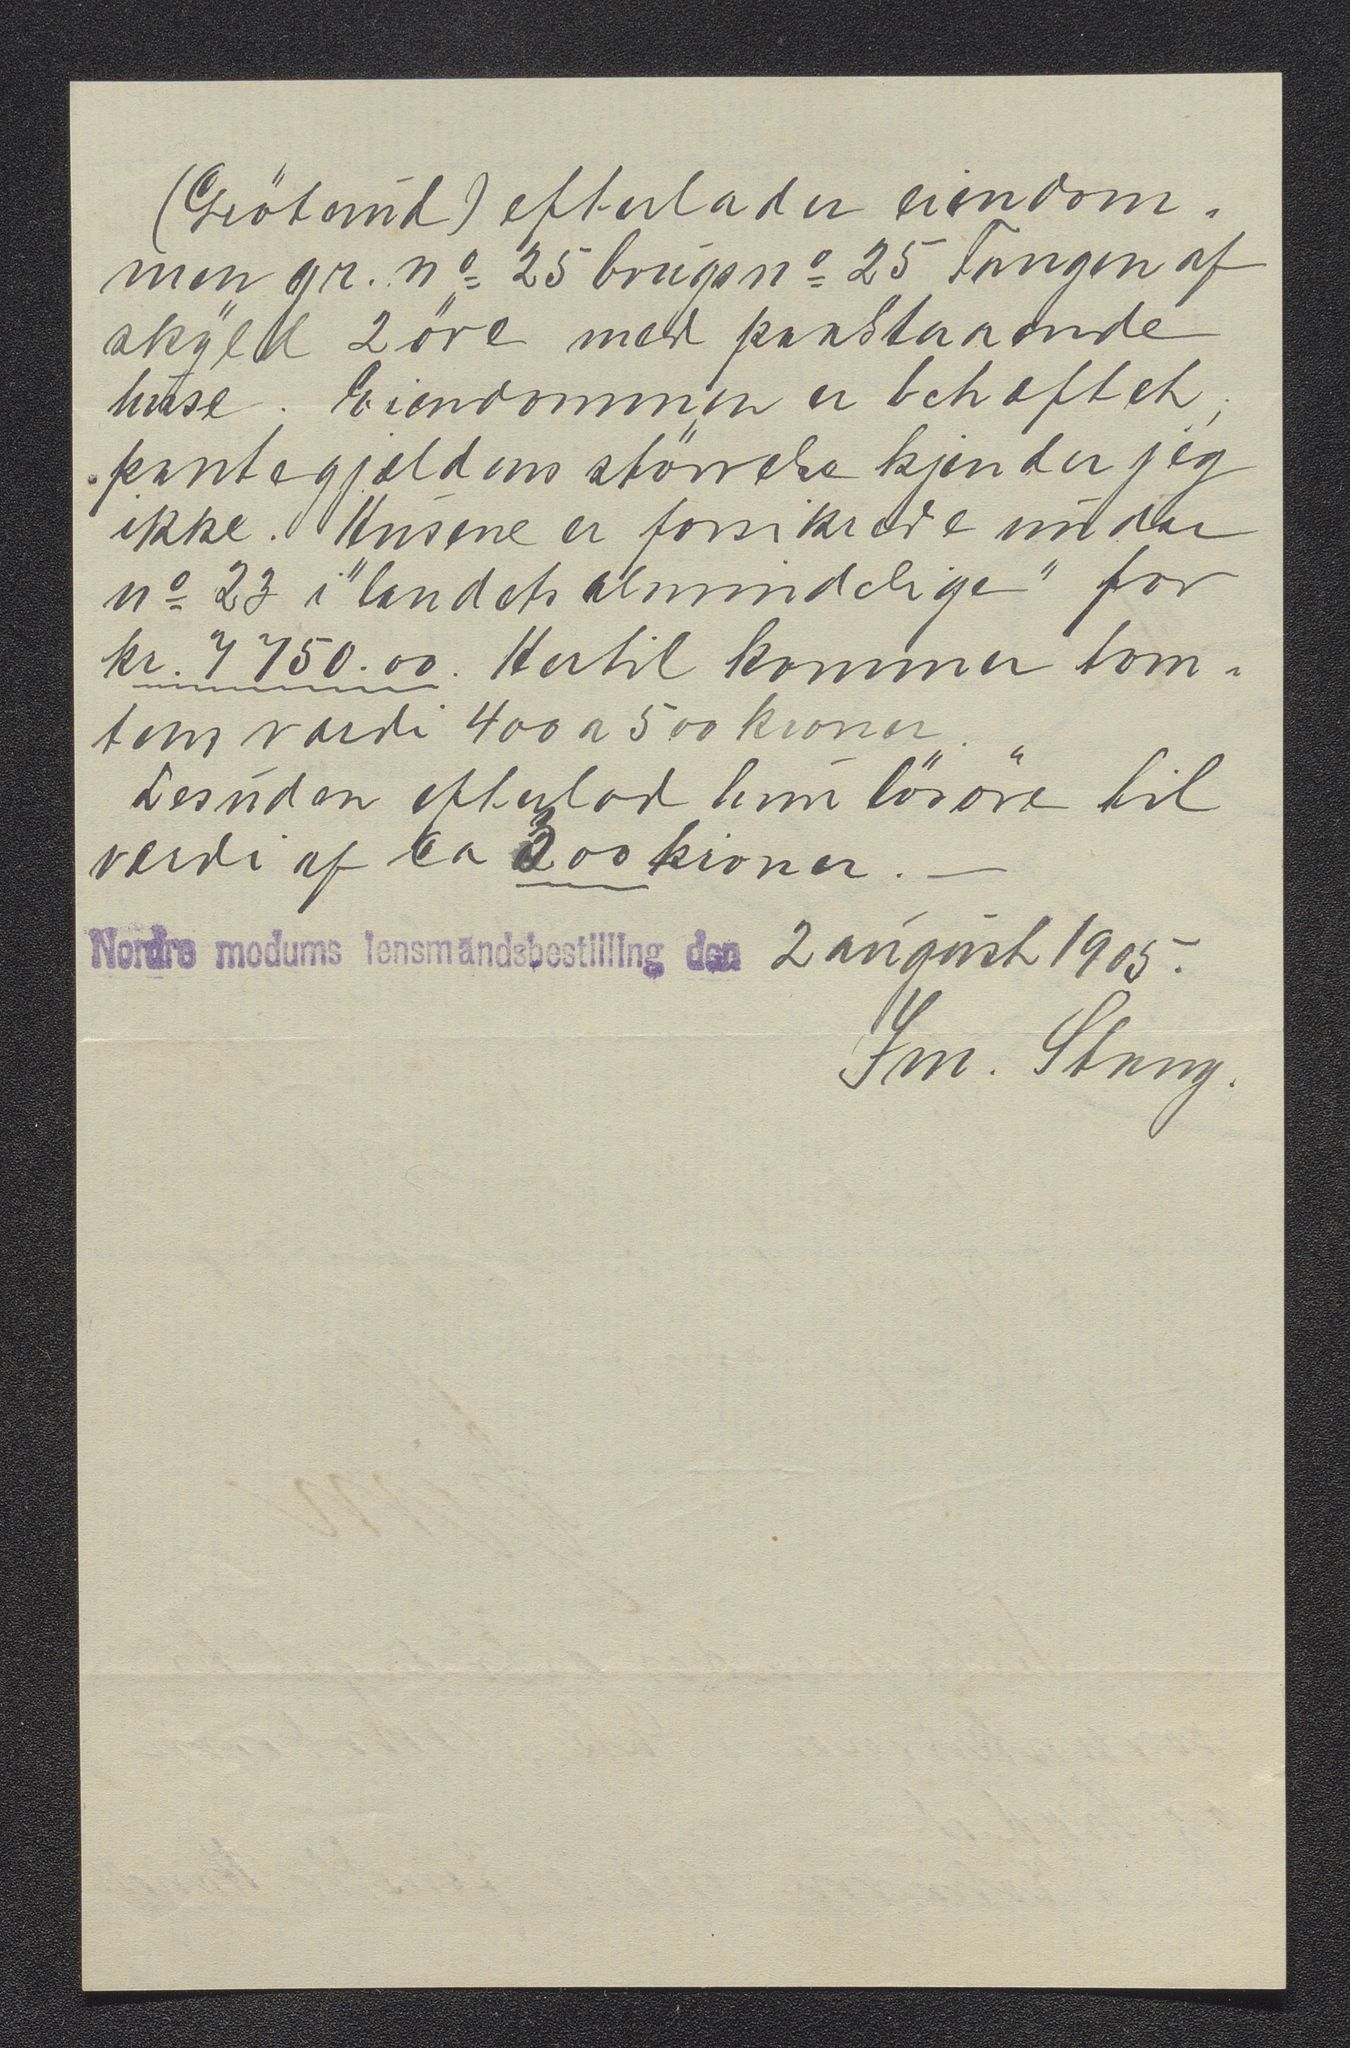 (Gröterud) efterlader eiendom-
men gr. no 25 brugsno 25 Tangen af
skyld 2 öre med paastaaende
huse. Eiendommen er behæftet,
pantegjældens störrelse kjender jeg
ikke. Husene er forsikrede under
no 23 i "landets almindelige" for
kr. 7750.00. Hertil kommer tom-
tens værdi 400 a 500 kroner.
Desuden efterlod hun lösöre til
værdi af ca 300 kroner. —
Nordre modums lensmandsbestilling den 2 august 1905.
Im. Stang.